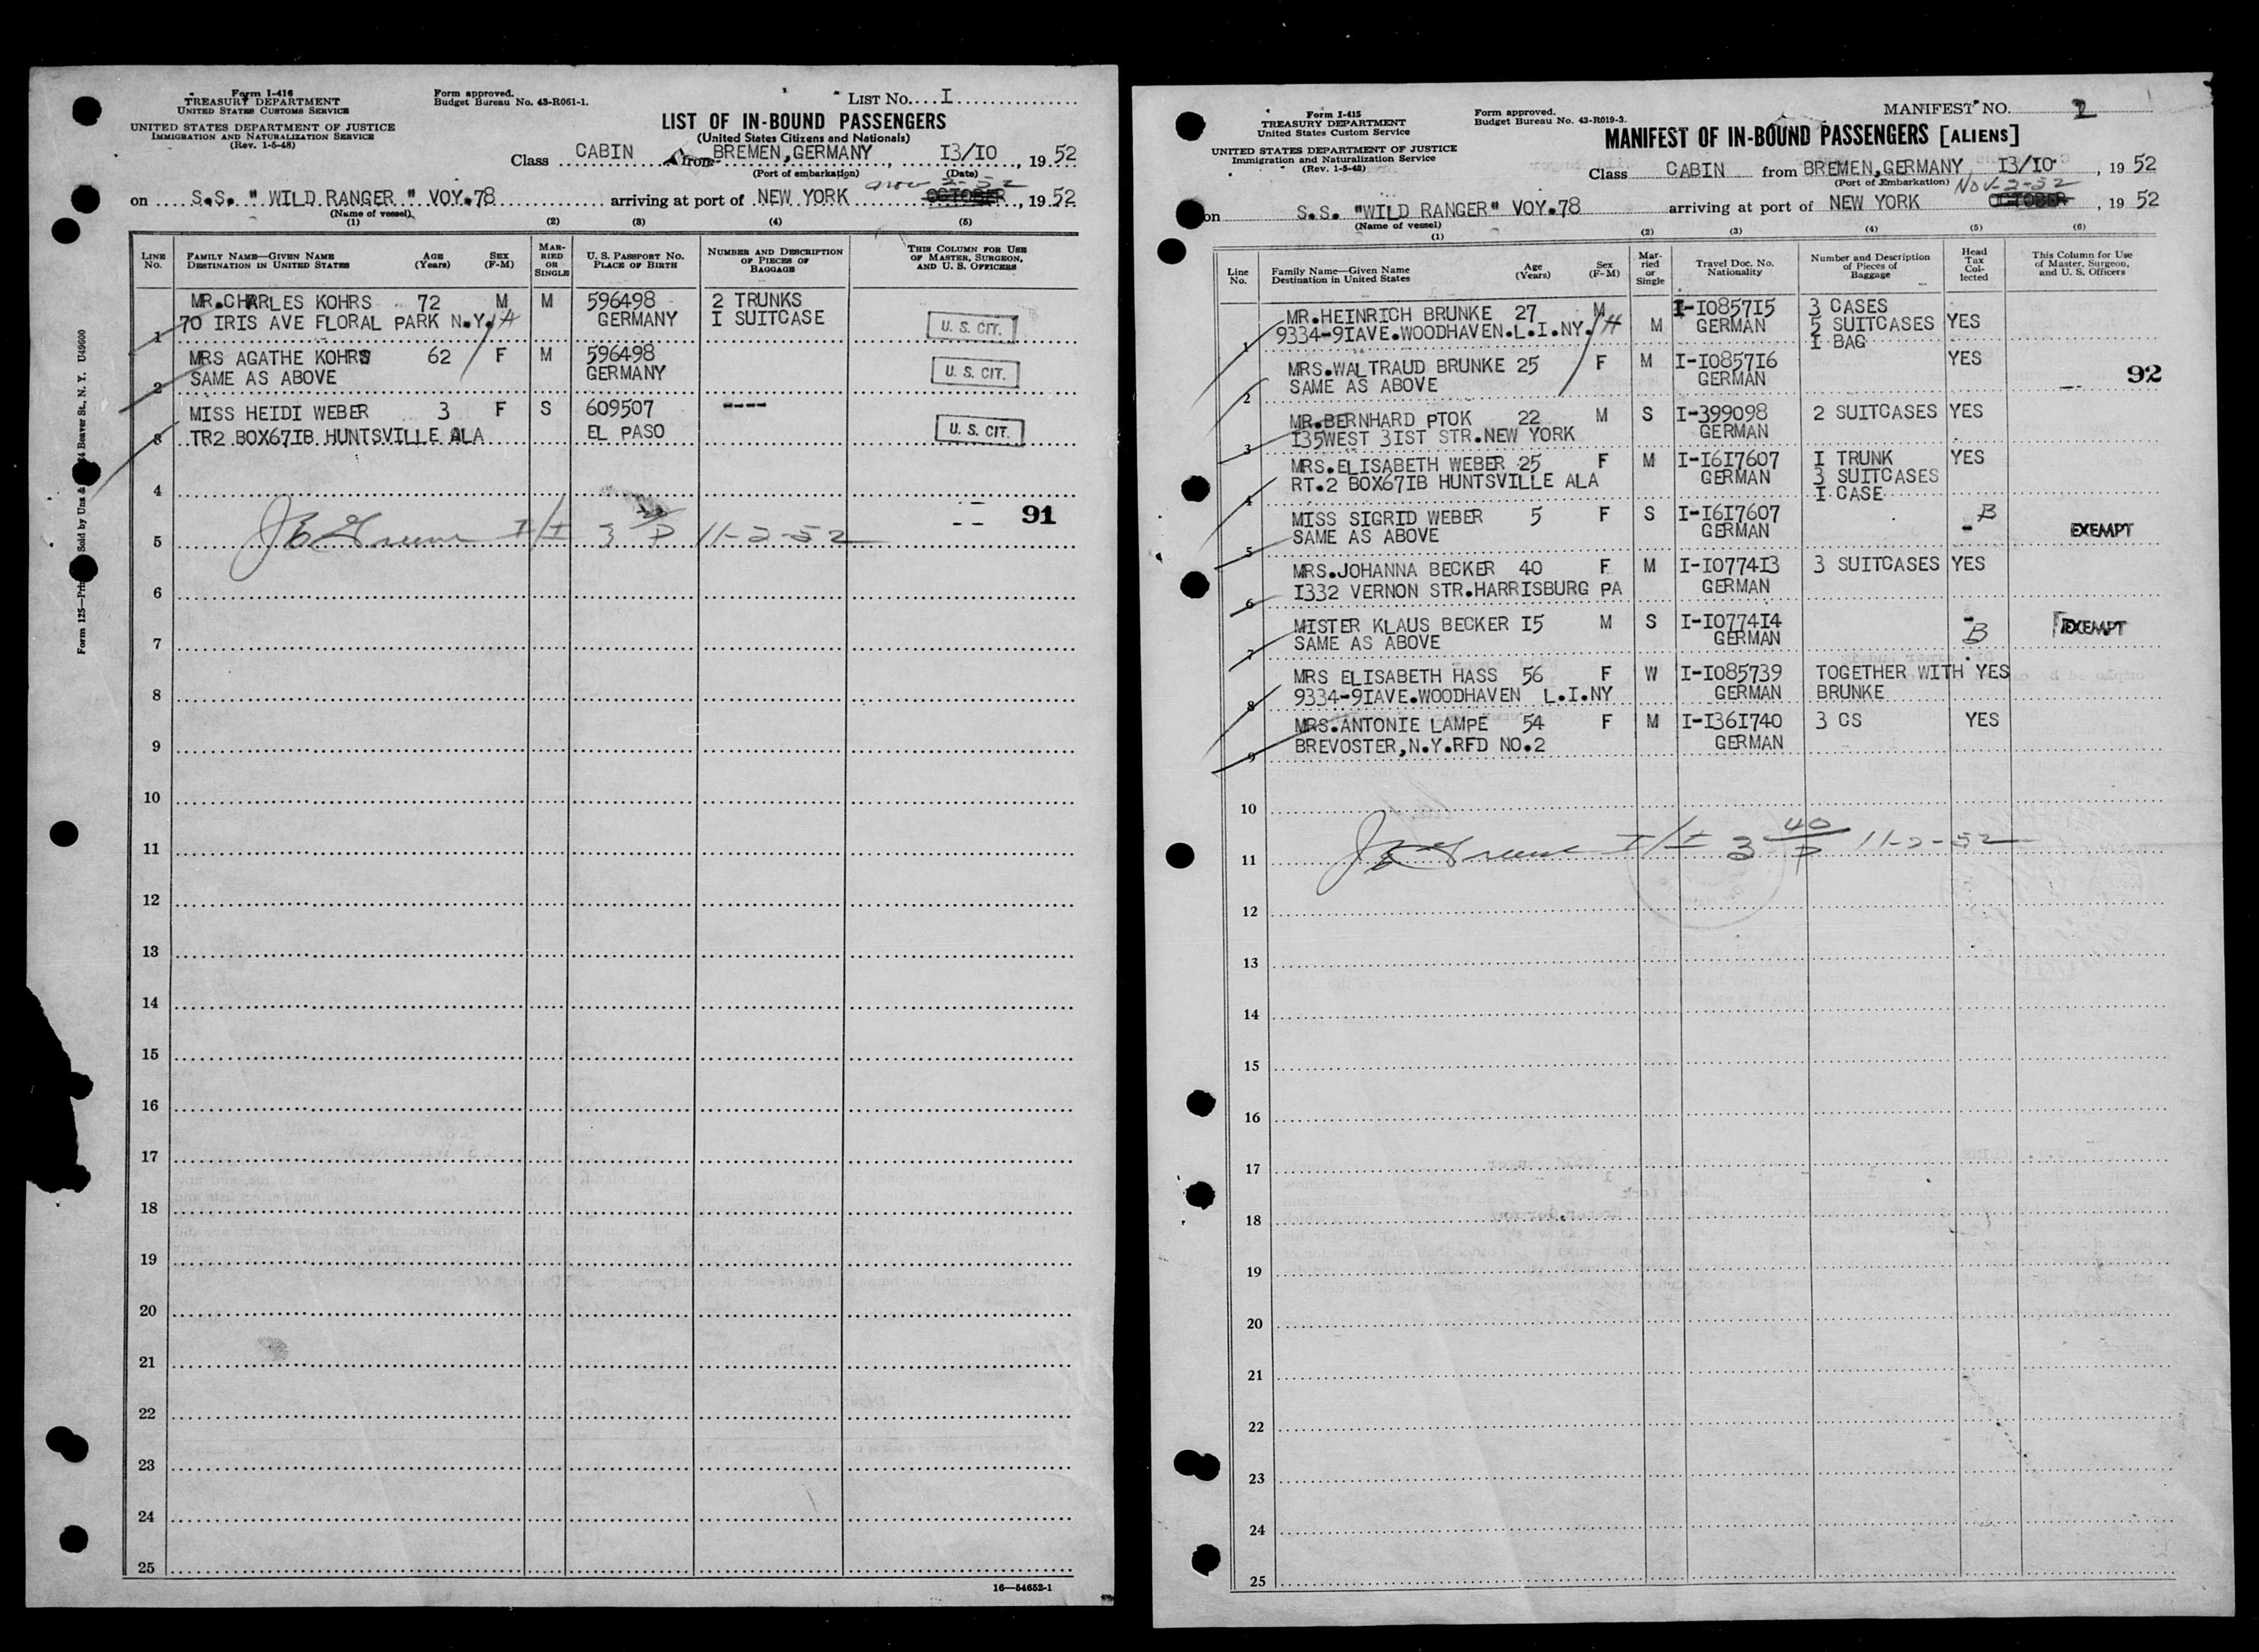 Form I-416
TREASURY DEPARTMENT
UNITED STATES CUSTOMS SERVICE
UNITED STATES DEPARTMENT OF JUSTICE
IMMIGRATION AND NATURALIZATION SERVICE
(Rev. 1-5-48)
Form approved.
Budget Bureau No. 43-R061-1.
LIST NO. I
LIST OF IN-BOUND PASSENGERS
(United States Citizens and Nationals)
Class CABIN from BREMEN, GERMANY, I3/IO, 1952
(Port of embarkation) (Date)
Nov 2-52
on S.S. "WILD RANGER" VOY.78 arriving at port of NEW YORK OCTOBER, 1952
(Name of vessel)
(1) (2) (3) (4) (5)
LINE No. FAMILY NAME—GIVEN NAME DESTINATION IN UNITED STATES AGE (Years) SEX (F-M) MARRIED OR SINGLE U. S. PASSPORT NO. PLACE OF BIRTH NUMBER AND DESCRIPTION OF PIECES OF BAGGAGE THIS COLUMN FOR USE OF MASTER, SURGEON, AND U. S. OFFICERS
MR.CHARLES KOHRS 72 M M 596498 2 TRUNKS
1 70 IRIS AVE FLORAL PARK N.Y. GERMANY I SUITCASE U. S. CIT.
MRS AGATHE KOHRS 62 F M 596498
2 SAME AS ABOVE GERMANY U. S. CIT.
MISS HEIDI WEBER 3 F S 609507 ----
3 TR2 BOX67IB HUNTSVILLE ALA EL PASO U. S. CIT.
4
91
5 11-2-52
6
7
8
9
10
11
12
13
14
15
16
17
18
19
20
21
22
23
24
25
16—54652-1
Form I-415
TREASURY DEPARTMENT
United States Custom Service
UNITED STATES DEPARTMENT OF JUSTICE
Immigration and Naturalization Service
(Rev. 1-5-48)
Form approved.
Budget Bureau No. 43-R019-3.
MANIFEST NO.
MANIFEST OF IN-BOUND PASSENGERS [ALIENS]
Class CABIN from BREMEN, GERMANY I3/IO, 1952
(Port of Embarkation) Nov-2-52
on S.S. "WILD RANGER" VOY.78 arriving at port of NEW YORK OCTOBER, 1952
(Name of vessel)
(1) (2) (3) (4) (5) (6)
Line No. Family Name—Given Name Destination in United States Age (Years) Sex (F-M) Married or Single Travel Doc. No. Nationality Number and Description of Pieces of Baggage Head Tax Collected This Column for Use of Master, Surgeon, and U. S. Officers
MR.HEINRICH BRUNKE 27 M I-IO857I5 3 CASES
9334-9IAVE.WOODHAVEN.L.I.NY. M GERMAN 5 SUITCASES YES
1 I BAG
MRS.WALTRAUD BRUNKE 25 F M I-IO857I6 YES
2 SAME AS ABOVE GERMAN 92
MR.BERNHARD PTOK 22 M S I-399098 2 SUITCASES YES
3 I35WEST 3IST STR.NEW YORK GERMAN
MRS.ELISABETH WEBER 25 F M I-I6I7607 I TRUNK YES
RT.2 BOX67IB HUNTSVILLE ALA GERMAN 3 SUITCASES
4 I CASE
MISS SIGRID WEBER 5 F S I-I6I7607 B
5 SAME AS ABOVE GERMAN - EXEMPT
MRS.JOHANNA BECKER 40 F M I-IO774I3 3 SUITCASES YES
6 I332 VERNON STR.HARRISBURG PA GERMAN
MISTER KLAUS BECKER I5 M S I-IO774I4 - EXEMPT
7 SAME AS ABOVE GERMAN B
MRS ELISABETH HASS 56 F W I-IO85739 TOGETHER WITH YES
8 9334-9IAVE.WOODHAVEN L.I.NY GERMAN BRUNKE
MRS.ANTONIE LAMPE 54 F M I-I36I740 3 CS YES
9 BREVOSTER,N.Y.RFD NO.2 GERMAN
10
11 11-2-52
12
13
14
15
16
17
18
19
20
21
22
23
24
25